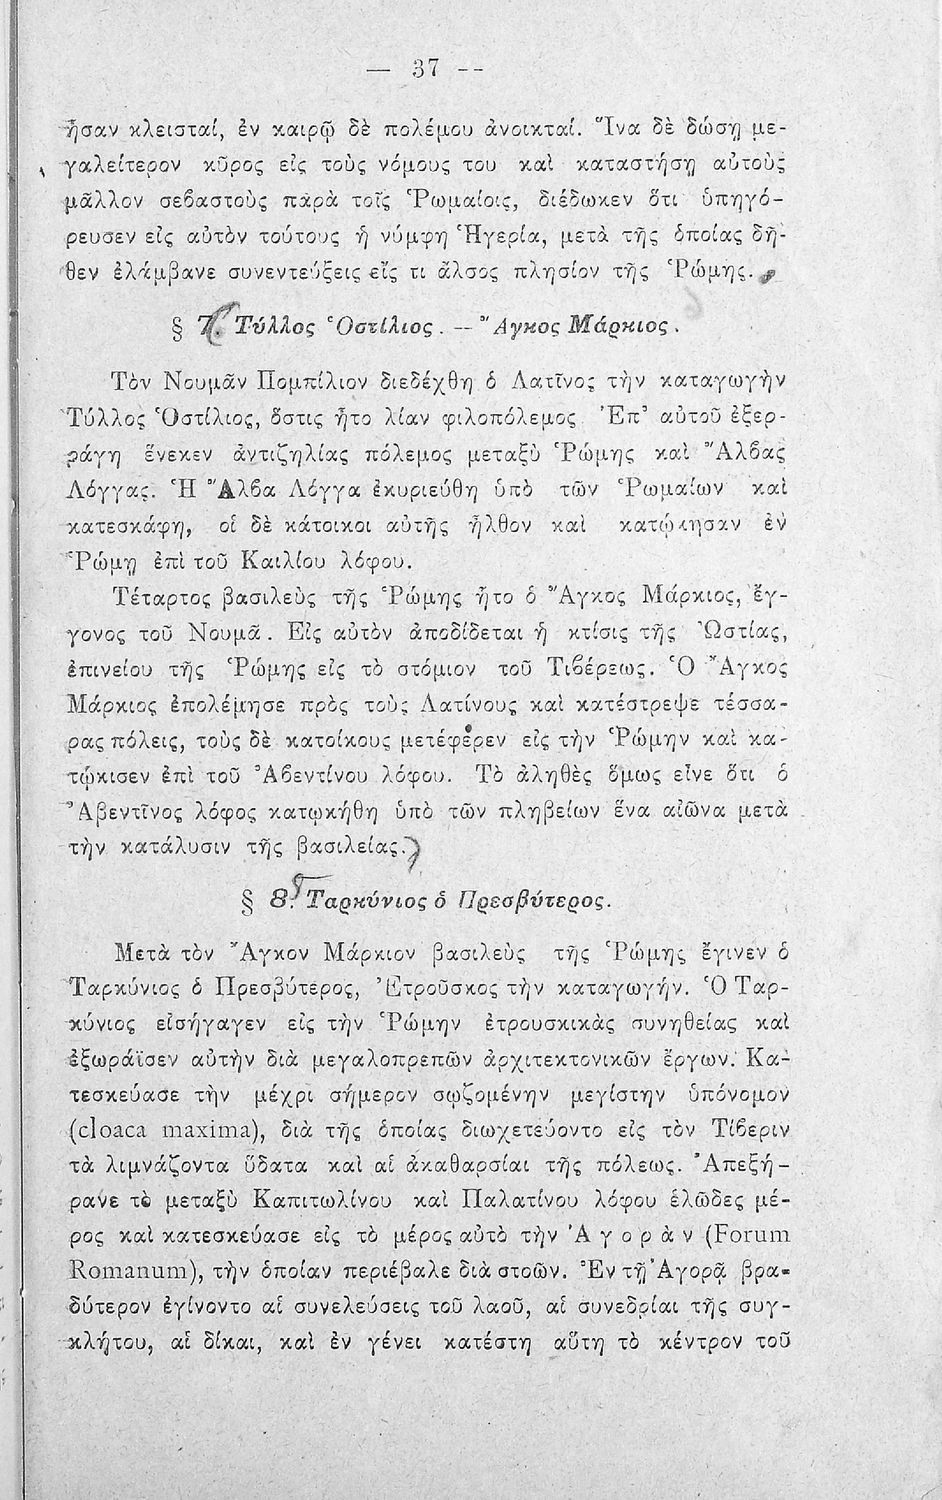 — 37 --
ἦσαν κλεισταί, ἐν καιρῷ δὲ πολέμου ἀνοικταί. Ἵνα δὲ δώσῃ με-
γαλείτερον κῦρος εἰς τοὺς νόμους του καὶ καταστήσῃ αὐτοὺς
μᾶλλον σεβαστοὺς παρὰ τοῖς Ῥωμαίοις, διέδωκεν ὅτι ὑπηγό-
ρευσεν εἰς αὐτὸν τούτους ἡ νύμφη Ἡγερία, μετὰ τῆς ὁποίας δῆ-
θεν ἐλάμβανε συνεντεύξεις εἴς τι ἄλσος πλησίον τῆς Ῥώμης.
§ 7. Τύλλος Ὁστίλιος. — Ἄγκος Μάρκιος.
Τὸν Νουμᾶν Πομπίλιον διεδέχθη ὁ Λατῖνος τὴν καταγωγὴν
Τύλλος Ὁστίλιος, ὅστις ἦτο λίαν φιλοπόλεμος Ἐπ' αὐτοῦ ἐξερ-
ράγη ἕνεκεν ἀντιζηλίας πόλεμος μεταξὺ Ῥώμης καὶ Ἄλβας
Λόγγας. Ἡ Ἄλβα Λόγγα ἐκυριεύθη ὑπὸ τῶν Ῥωμαίων καὶ
κατεσκάφη, οἱ δὲ κάτοικοι αὐτῆς ἦλθον καὶ κατῴκησαν ἐν
Ῥώμῃ ἐπὶ τοῦ Καιλίου λόφου.
Τέταρτος βασιλεὺς τῆς Ῥώμης ἦτο ὁ Ἄγκος Μάρκιος, ἔγ-
γονος τοῦ Νουμᾶ. Εἰς αὐτὸν ἀποδίδεται ἡ κτίσις τῆς Ὠστίας,
ἐπινείου τῆς Ῥώμης εἰς τὸ στόμιον τοῦ Τιβέρεως. Ὁ Ἄγκος
Μάρκιος ἐπολέμησε πρὸς τοὺς Λατίνους καὶ κατέστρεψε τέσσα-
ρας πόλεις, τοὺς δὲ κατοίκους μετέφερεν εἰς τὴν Ῥώμην καὶ κα-
τῴκισεν ἐπὶ τοῦ Ἀβεντίνου λόφου. Τὸ ἀληθὲς ὅμως εἶνε ὅτι ὁ
Ἀβεντῖνος λόφος κατῳκήθη ὑπὸ τῶν πληβείων ἕνα αἰῶνα μετὰ
τὴν κατάλυσιν τῆς βασιλείας.
§ 8. Ταρκύνιος ὁ Πρεσβύτερος.
Μετὰ τὸν Ἄγκον Μάρκιον βασιλεὺς τῆς Ῥώμης ἔγινεν ὁ
Ταρκύνιος ὁ Πρεσβύτερος, Ἐτροῦσκος τὴν καταγωγήν. Ὁ Ταρ-
κύνιος εἰσήγαγεν εἰς τὴν Ῥώμην ἐτρουσκικὰς συνηθείας καὶ
ἐξωράϊσεν αὐτὴν διὰ μεγαλοπρεπῶν ἀρχιτεκτονικῶν ἔργων. Κα-
τεσκεύασε τὴν μέχρι σήμερον σῳζομένην μεγίστην ὑπόνομον
(cloaca maxima), διὰ τῆς ὁποίας διωχετεύοντο εἰς τὸν Τίβεριν
τὰ λιμνάζοντα ὕδατα καὶ αἱ ἀκαθαρσίαι τῆς πόλεως. Ἀπεξή-
ρανε τὸ μεταξὺ Καπιτωλίνου καὶ Παλατίνου λόφου ἑλῶδες μέ-
ρος καὶ κατεσκεύασε εἰς τὸ μέρος αὐτὸ τὴν Ἀ γ ο ρ ὰ ν (Forum
Romanum), τὴν ὁποίαν περιέβαλε διὰ στοῶν. Ἐν τῇ Ἀγορᾷ βρα-
δύτερον ἐγίνοντο αἱ συνελεύσεις τοῦ λαοῦ, αἱ συνεδρίαι τῆς συγ-
κλήτου, αἱ δίκαι, καὶ ἐν γένει κατέστη αὕτη τὸ κέντρον τοῦ